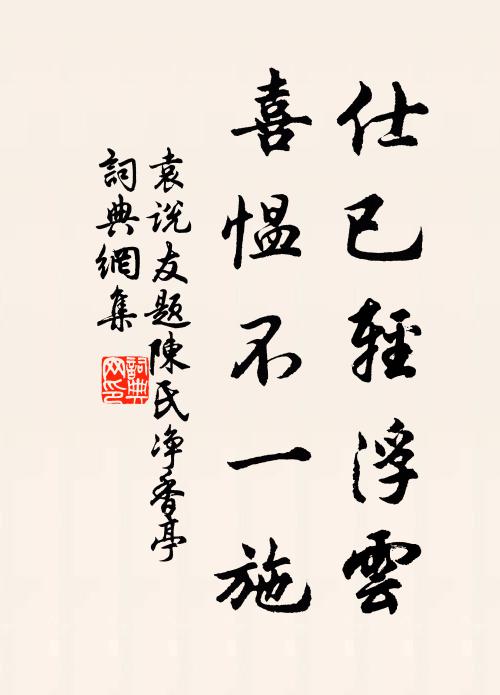 仕已輕浮雲
喜愠不一施
袁说友題陳氏净香亭
詞典網集
詞典網印